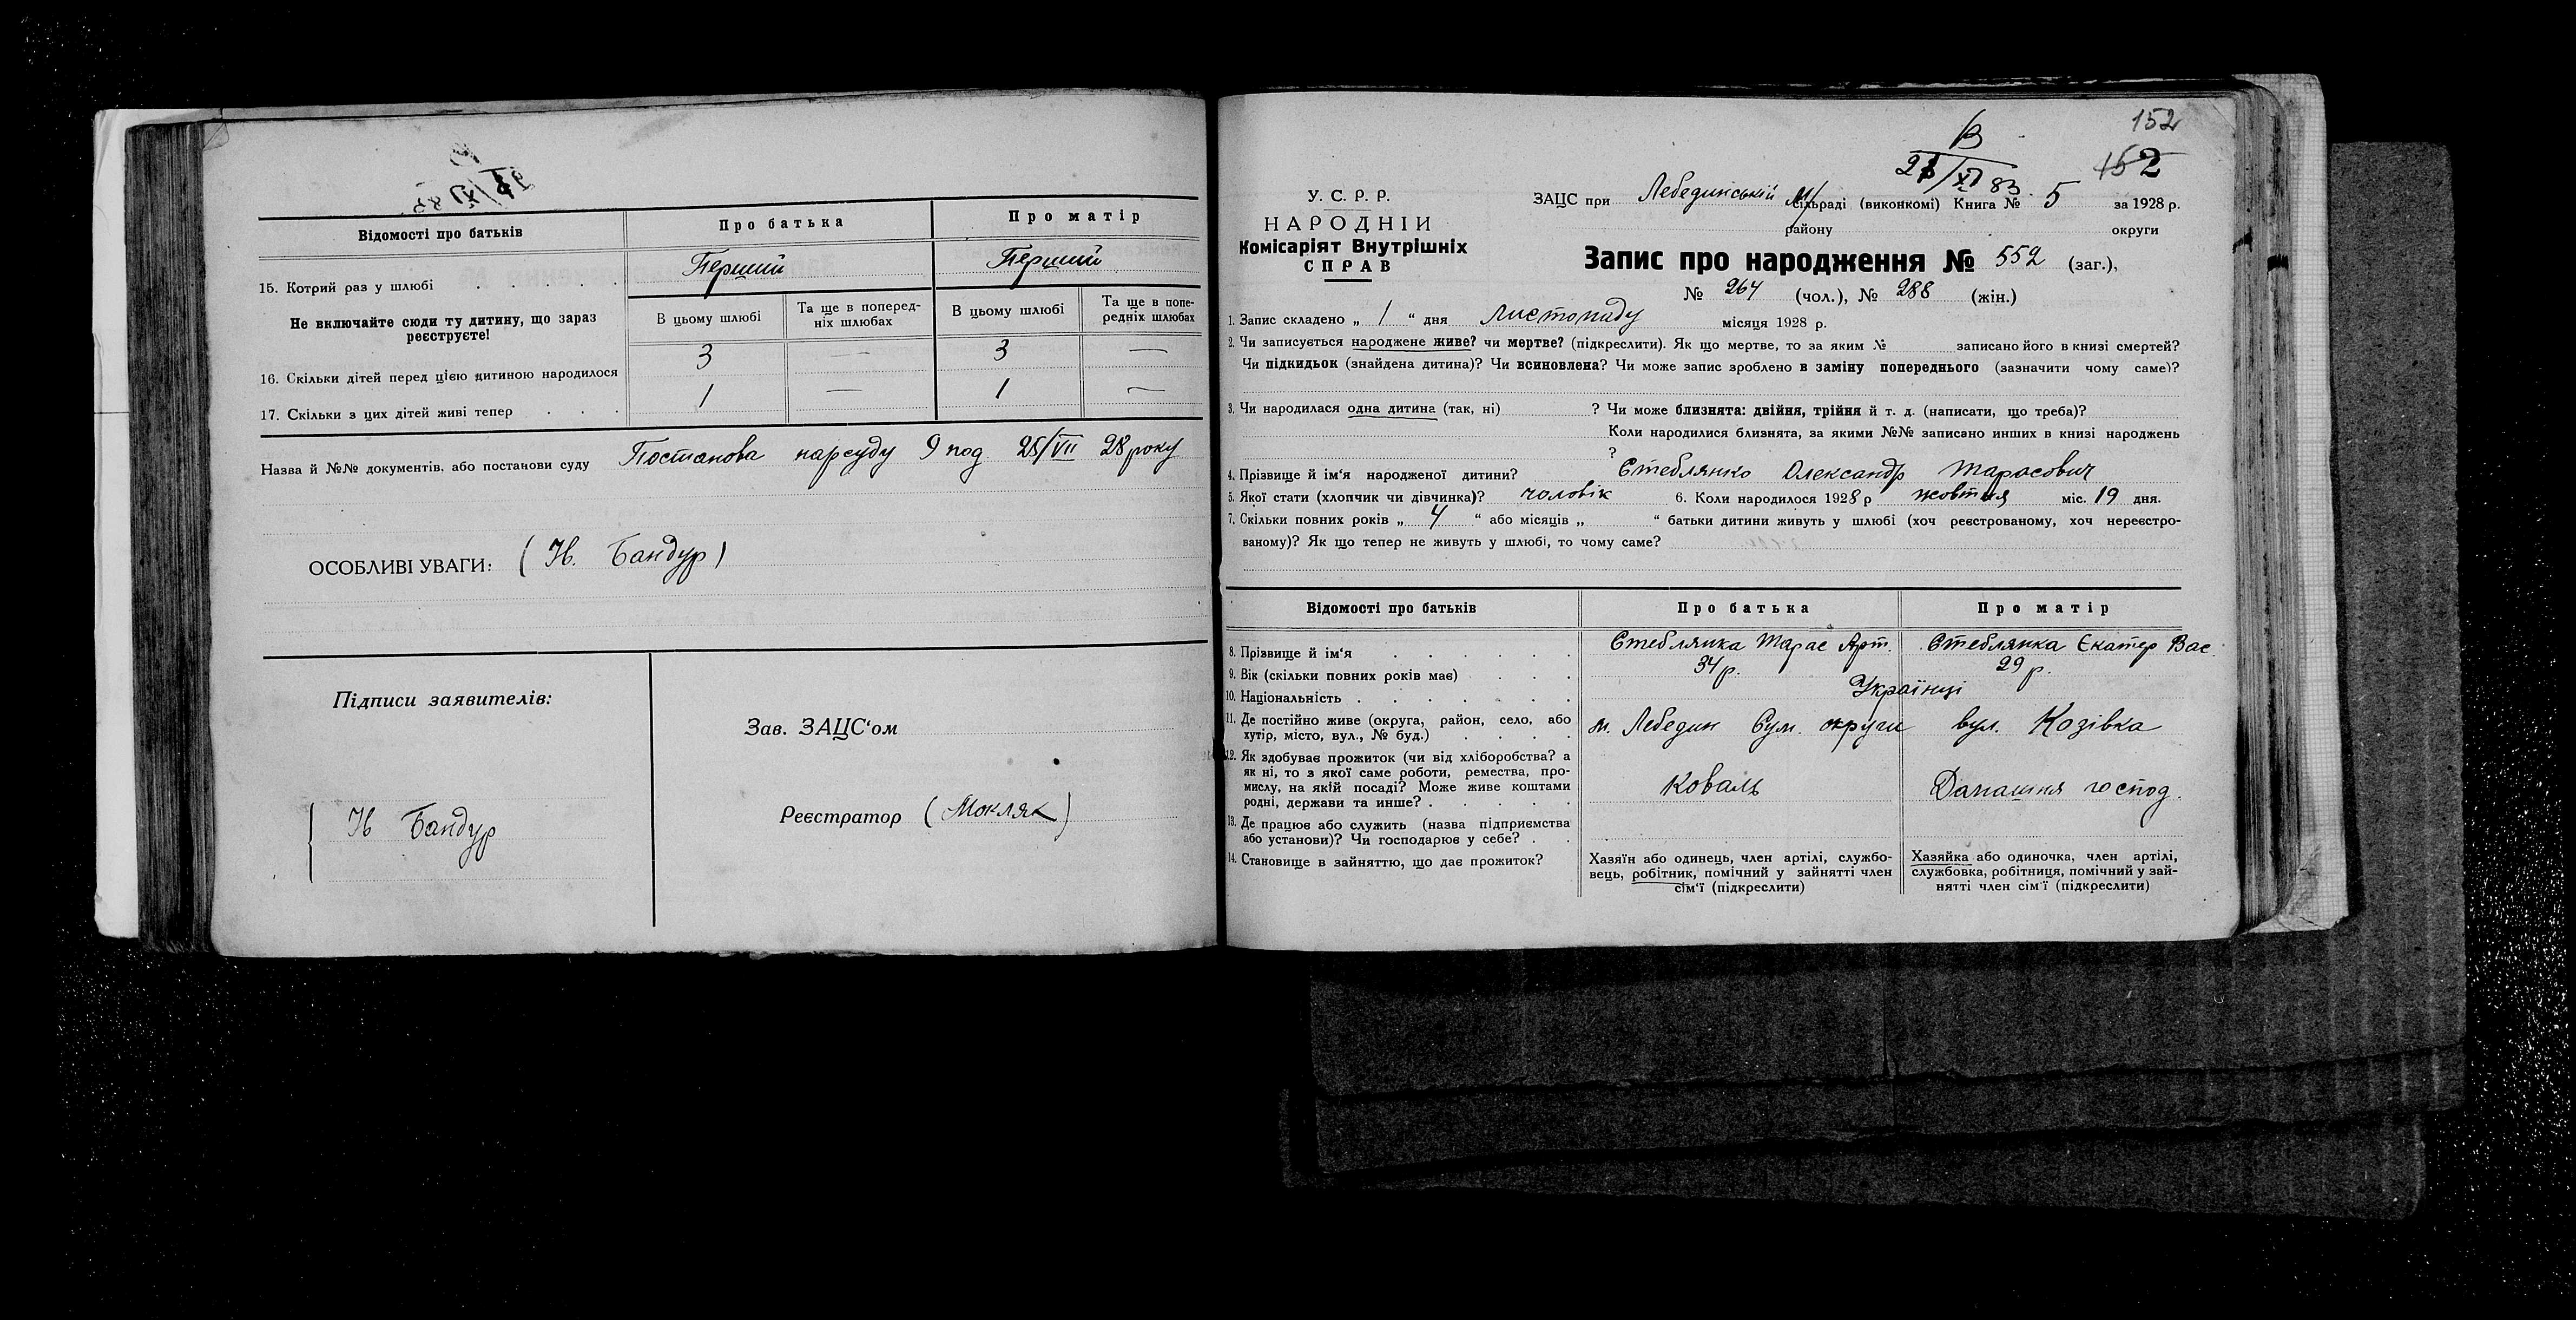 Відомості про батьків
Про батька
Про матір
15. Котрий раз у шлюбі
Перший
Перший
Не включайте сюди ту дитину, що зараз реєструєте!
В цьому шлюбі
Та ще в попередніх шлюбах
В цьому шлюбі
Та ще в попередніх шлюбах
16. Скільки дітей перед цією дитиною народилося
3 — 3 —
17. Скільки з цих дітей живі тепер
1 — 1 —
Назва й №№ документів, або постанови суду Постанова нарсуду 9 под 25/VII 28 року
ОСОБЛИВІ УВАГИ: (Н. Бандур)
Підписи заявителів:
Н Бандур
Зав. ЗАЦС‘ом
Реєстратор (Мокляк)
152
В
152
/XI 83
У. С. Р. Р.
НАРОДНІЙ
Комісаріят Внутрішніх
СПРАВ
ЗАЦС при Лебединській м/сільраді (виконкомі) Книга № 5 за 1928 р.
району округи
Запис про народження № 552 (заг.),
№ 264 (чол.), № 288 (жін.)
1. Запис складено „ 1 “ дня Листопаду місяця 1928 р.
2. Чи записується народжене живе? чи мертве? (підкреслити). Як що мертве, то за яким № записано його в книзі смертей?
Чи підкидьок (знайдена дитина)? Чи всиновлена? Чи може запис зроблено в заміну попереднього (зазначити чому саме)?
3. Чи народилася одна дитина (так, ні) ? Чи може близнята: двійня, трійня й т. д. (написати, що треба)?
Коли народилися близнята, за якими №№ записано инших в книзі народжень
?
4. Прізвище й ім‘я народженої дитини? Стеблянко Олександр Тарасович
5. Якої стати (хлопчик чи дівчинка)? чоловік 6. Коли народилося 1928 р жовтня міс. 19 дня.
7. Скільки повних років „ 4 “ або місяців „ “ батьки дитини живуть у шлюбі (хоч реєстрованому, хоч нереєстро-
ваному)? Як що тепер не живуть у шлюбі, то чому саме?
Відомості про батьків
Про батька
Про матір
8. Прізвище й ім‘я
Стеблянка Тарас Арт.
Стеблянка Екатер Вас.
9. Вік (скільки повних років має)
34 р.
29 р.
10. Національність
Українці
11. Де постійно живе (округа, район, село, або
хутір, місто, вул., № буд.)
м. Лебедин Сум. округи вул. Козівка
12. Як здобуває прожиток (чи від хліборобства? а
як ні, то з якої саме роботи, ремества, про-
мислу, на якій посаді? Може живе коштами
родні, держави та инше?
Коваль
Домашня господ.
13. Де працює або служить (назва підприємства
або установи)? Чи господарює у себе?
14. Становище в зайняттю, що дає прожиток?
Хазяїн або одинець, член артілі, службо-
вець, робітник, помічний у зайнятті член
сім‘ї (підкреслити)
Хазяйка або одиночка, член артілі,
службовка, робітниця, помічний у зай-
нятті член сім‘ї (підкреслити)